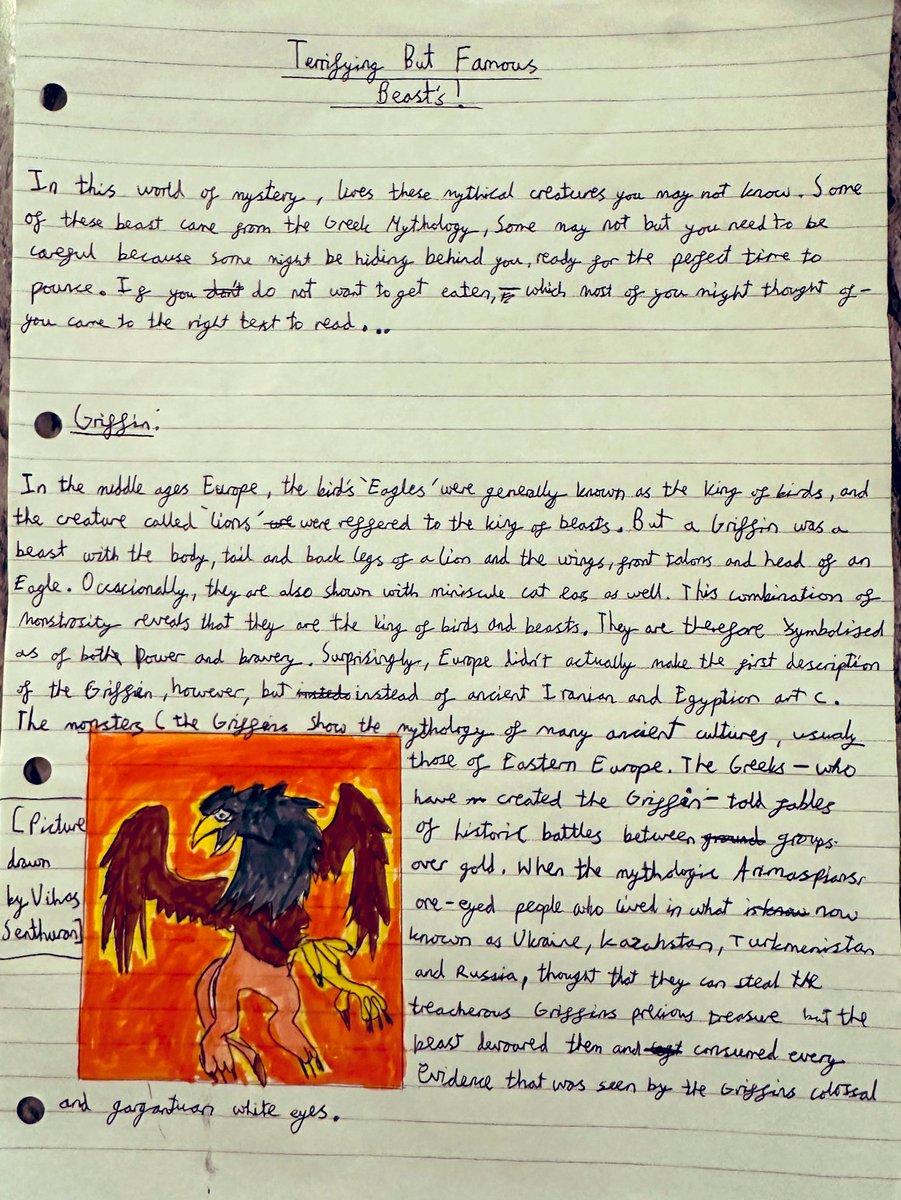 Terrifying But Famous
Beast's!
In this world of mystery, lives these mythical creatures you may not know. Some
of these beast came from the Greek Mythology, Some may not but you need to be
careful because some might be hiding behind you, ready for the perfect time to
pounce. If you don't do not want to get eaten, which most of you might thought of-
you came to the right text to read...
Griffin:
In the middle ages Europe, the bird's 'Eagles' were generally known as the king of birds, and
the creature called 'lions' were reffered to the king of beasts. But a Griffin was a
beast with the body, tail and back legs of a lion and the wings, front talons and head of an
Eagle. Occacionally, they are also shown with miniscule cat ears as well. This combination of
monstrosity reveals that they are the king of birds and beasts. They are therefore symbolised
as of both power and bravery. Surprisingly, Europe didn't actually make the first description
of the Griffin, however, but insteds instead of ancient Iranian and Egyption art c.
The monsters (the Griffins show the mythology of many ancient cultures, usualy
those of Eastern Europe. The Greeks - who
have created the Griffin - told fables
of historic battles between ground groups
over gold. When the mythologic Arimaspians,
one-eyed people who lived in what is know now
known as Ukraine, Kazahstan, Turkmenistan
and Russia, thought that they can steal the
treacherous Griffins precious treasure but the
beast devoured them and consumed every
Evidence that was seen by the Griffins colossal
and gargantuan white eyes.
[Picture
drawn
by Vihas
Senthuran]